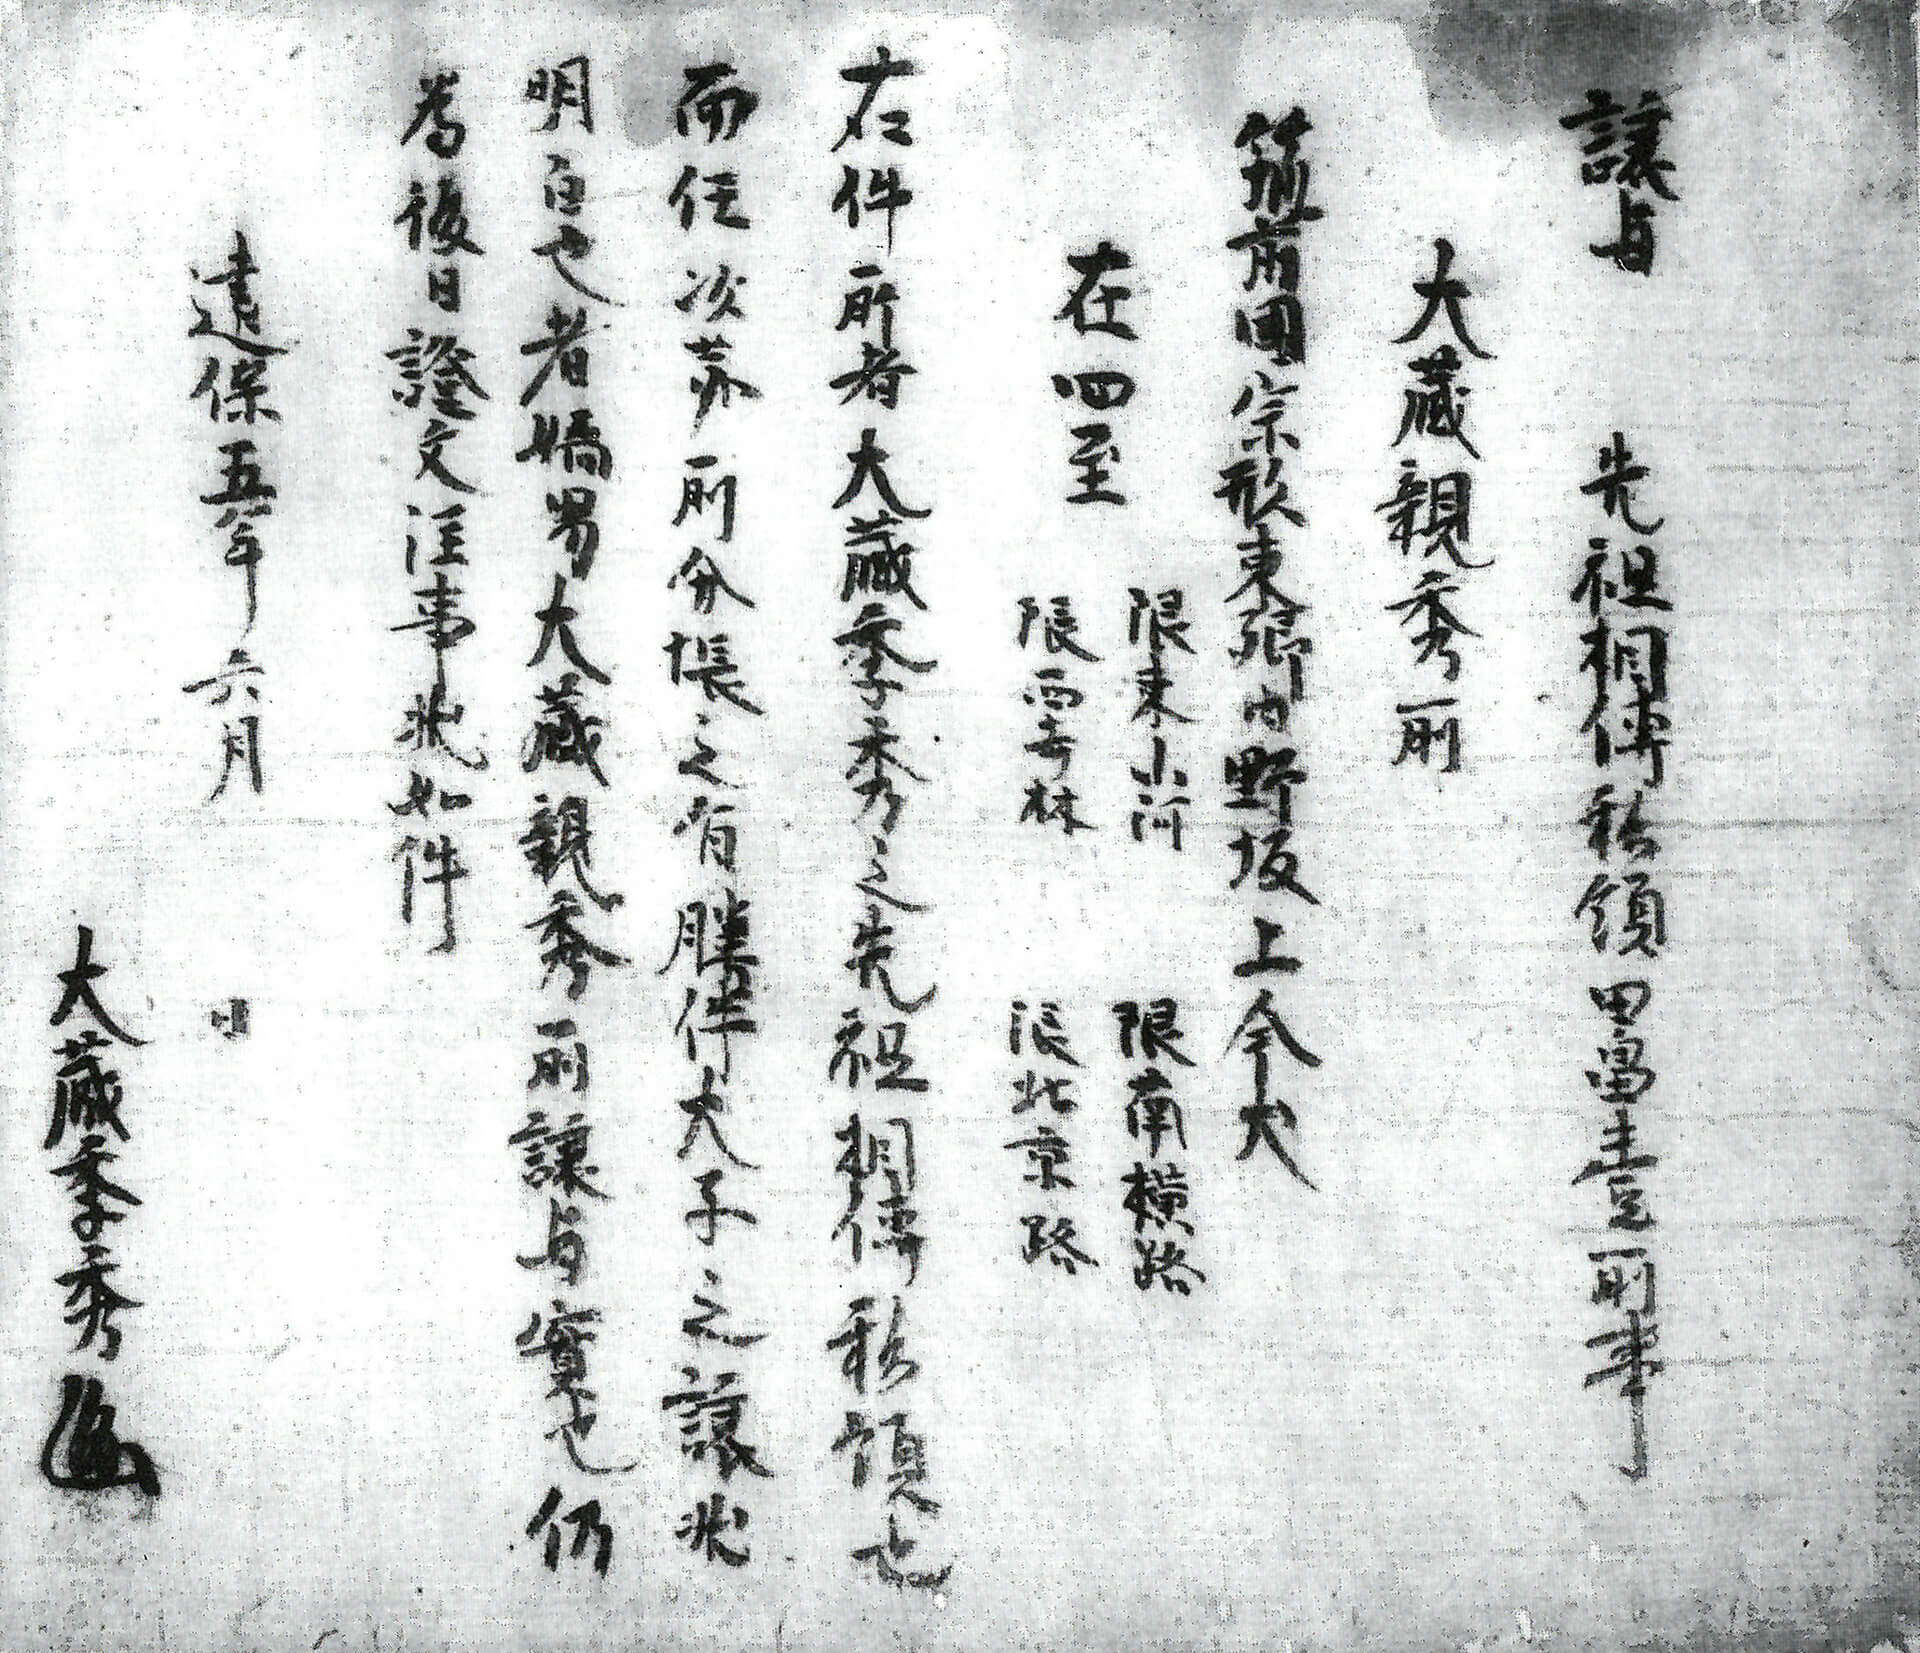 譲与　先祖相傳私領田畠壹所事
大蔵親秀所
筑前國宗形東郷内野坂上今犬
在四至
限東小河　限南横路
限西寺林　限北京路
右件所者大蔵季秀之先祖相傳私領也
而任次苐所分帳之有勝件犬子之譲状
明白也者嫡男大蔵親秀所譲与實也仍
為後日證文注事状如件
建保五年六月　日
大蔵季秀